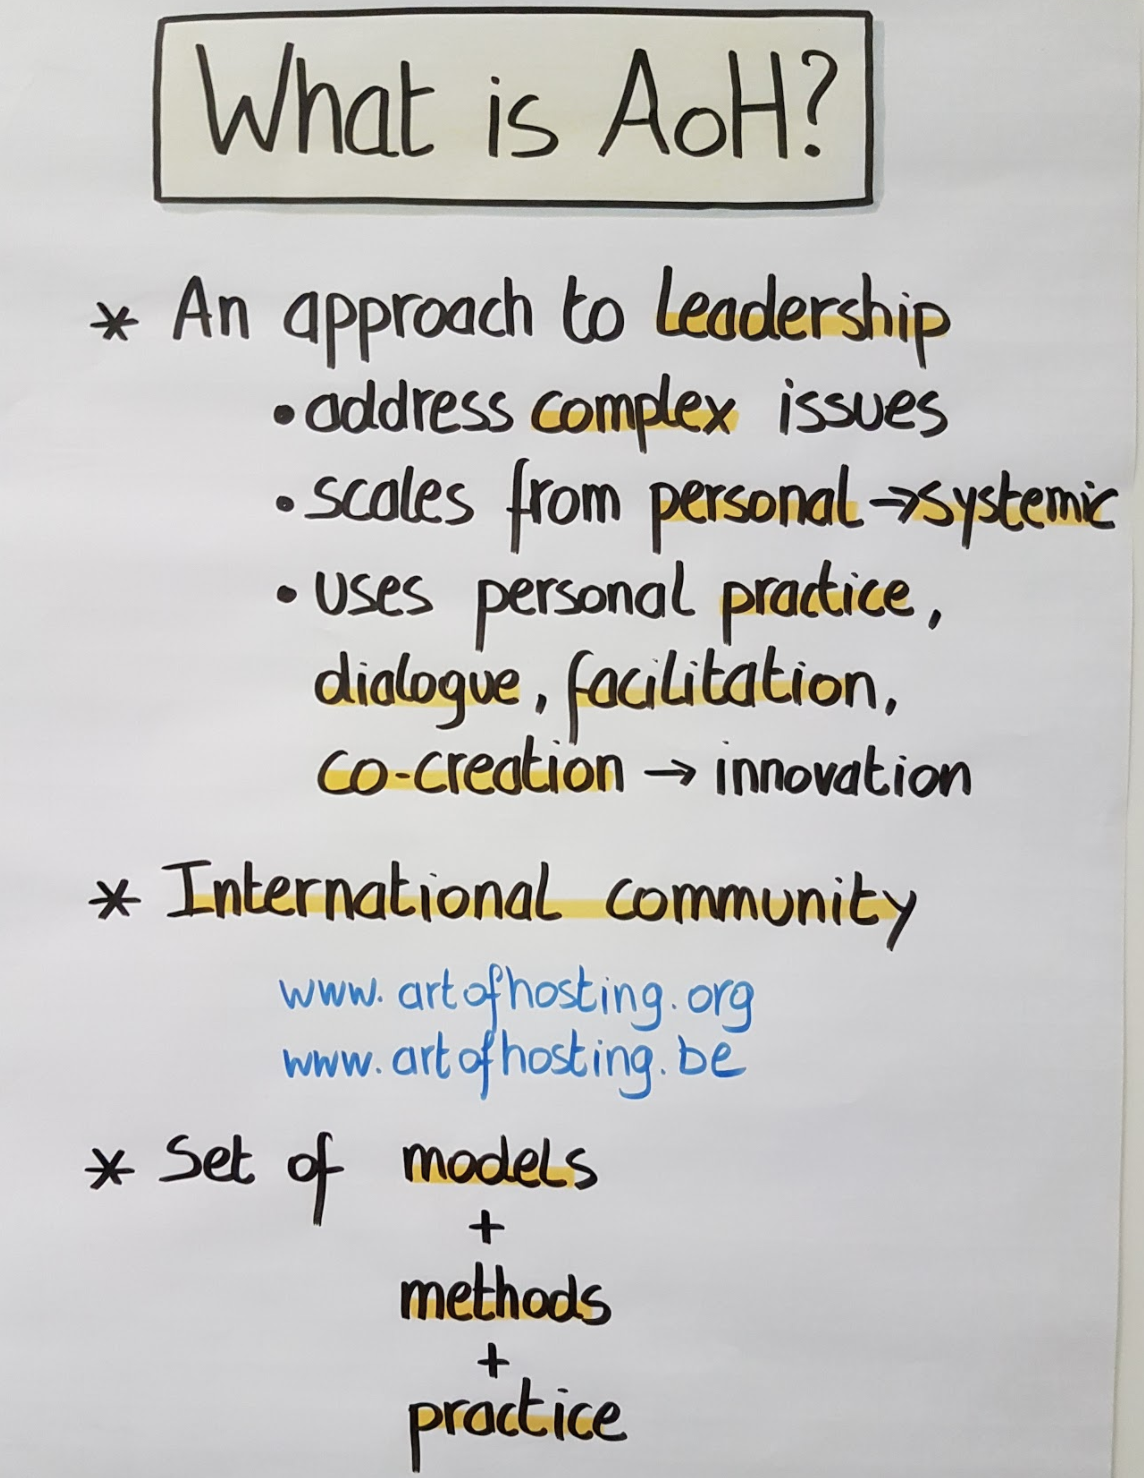 What is AoH?
* An approach to Leadership
• address complex issues
• scales from personal → systemic
• uses personal practice,
dialogue, facilitation,
co-creation → innovation
* International community
www.artofhosting.org
www.artofhosting.be
* Set of models
+
methods
+
practice